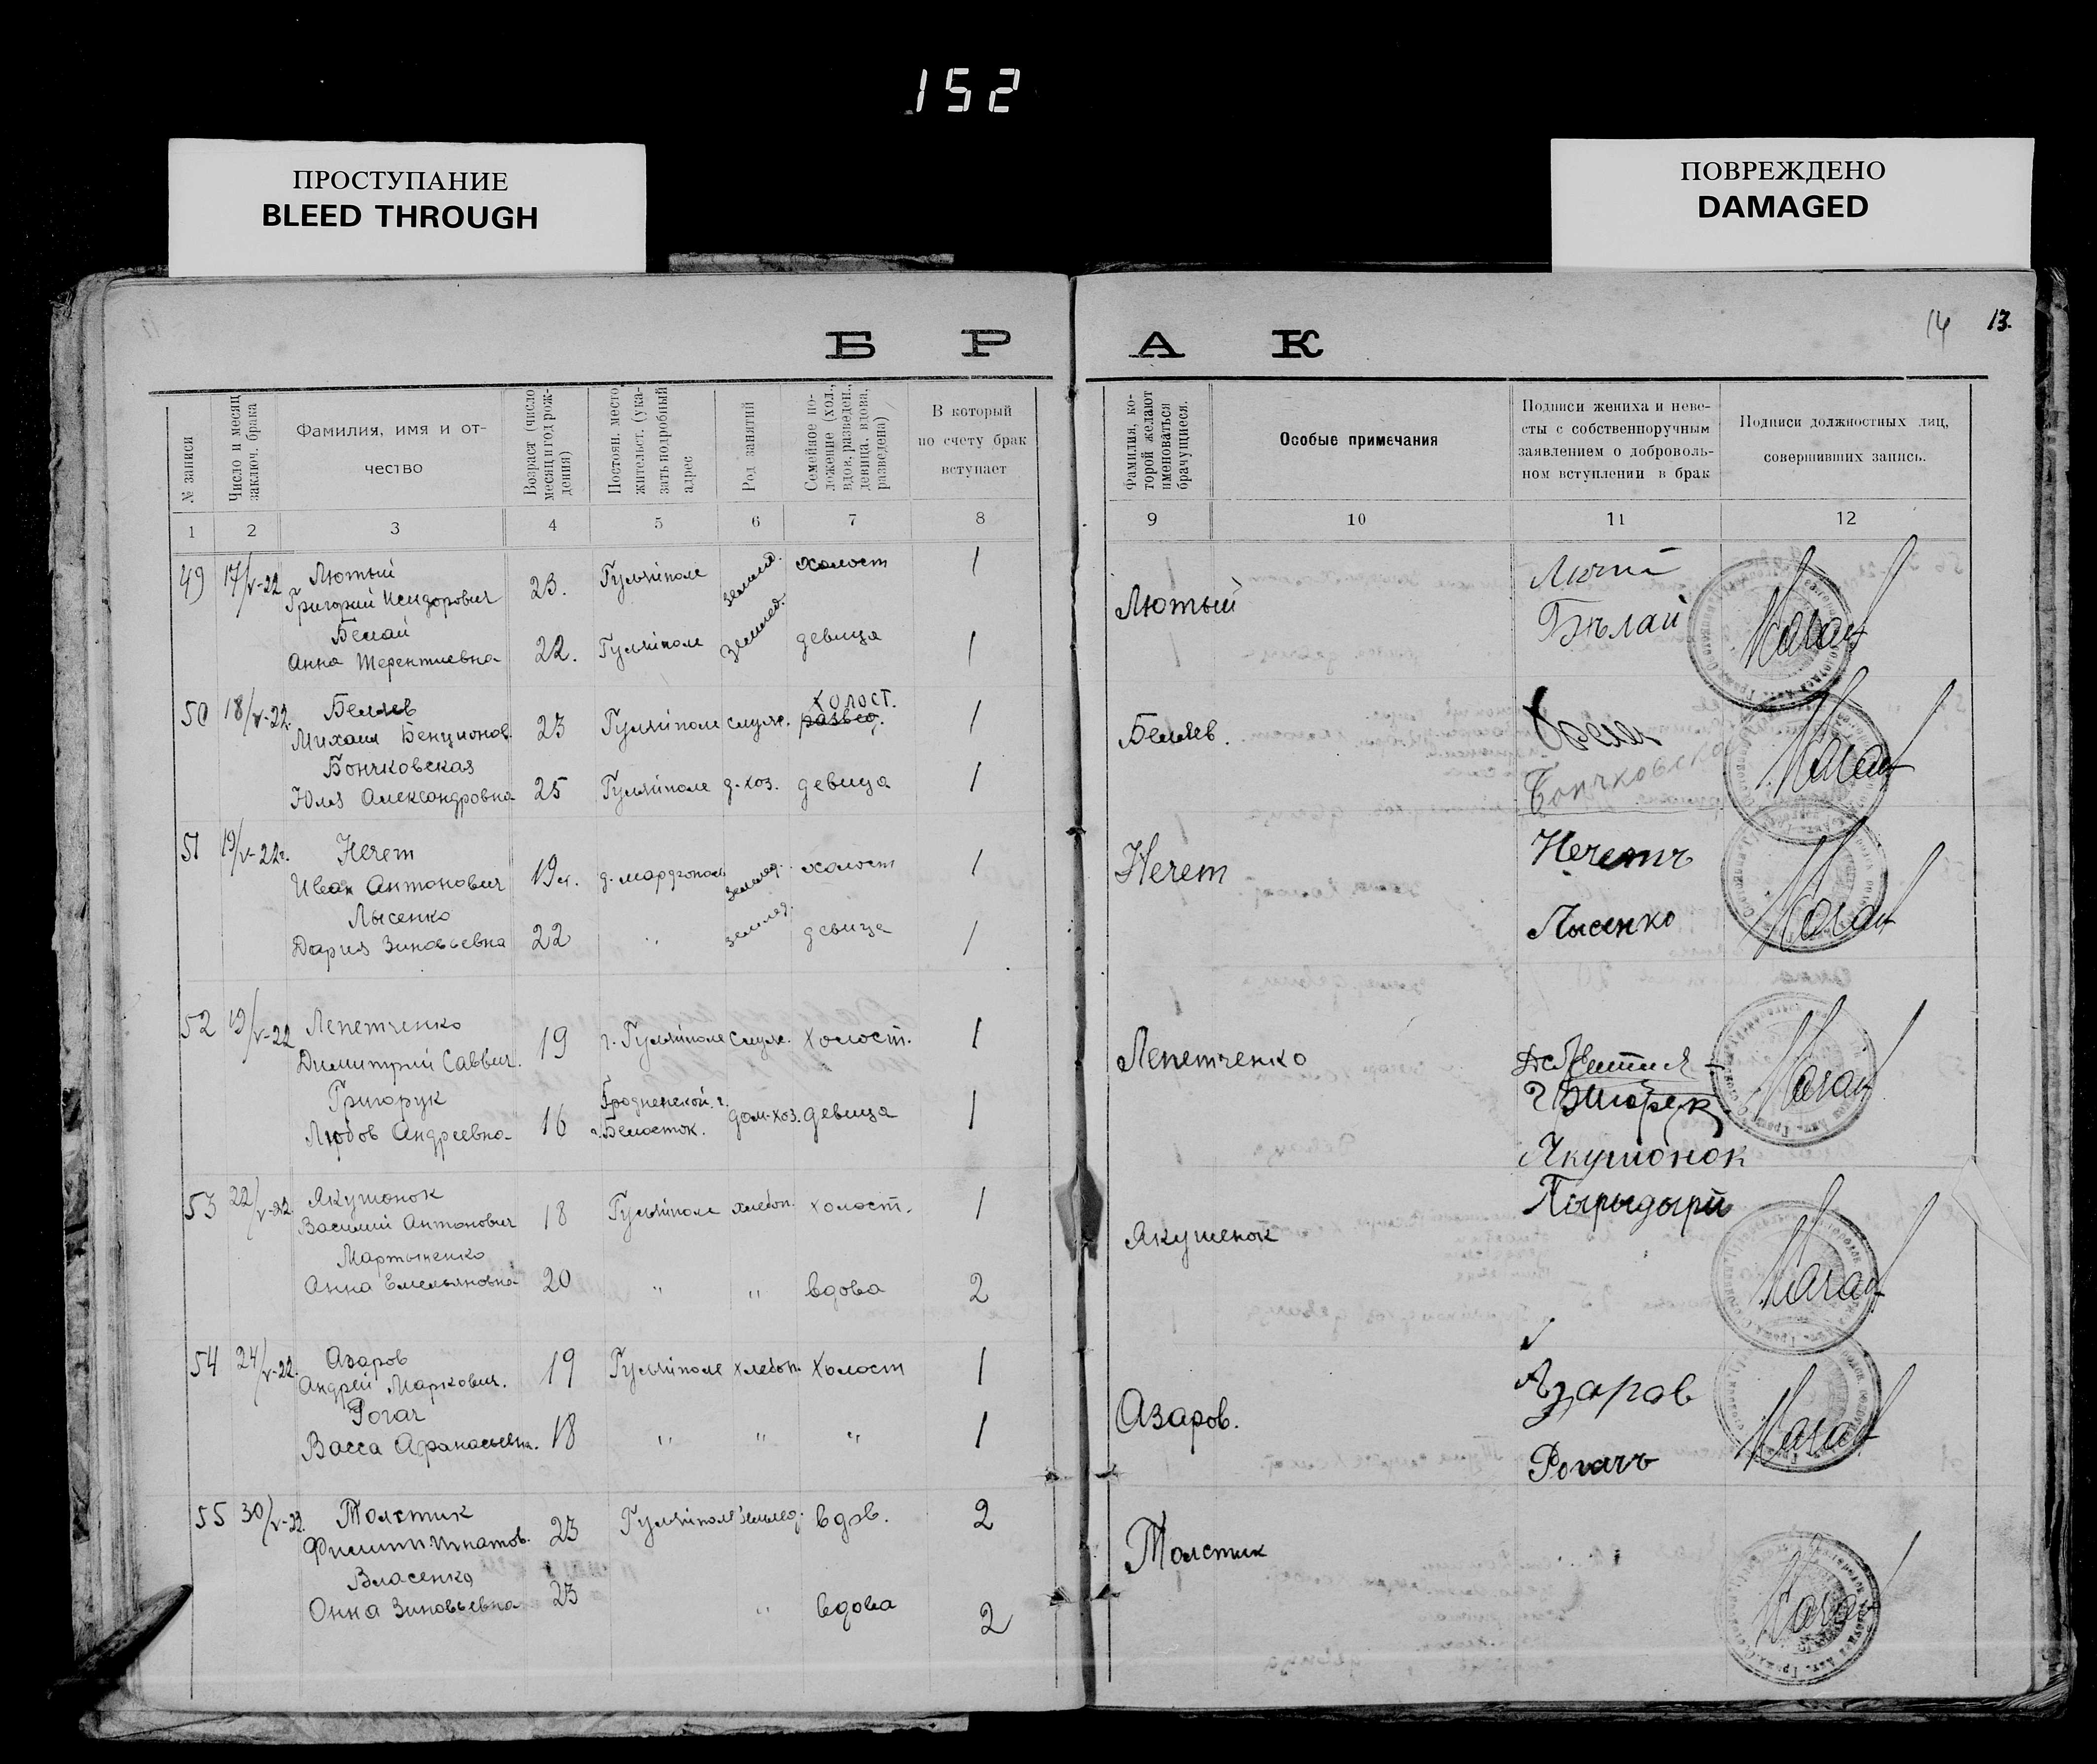 152
ПРОСТУПАНИЕ
BLEED THROUGH
ПОВРЕЖДЕНО
DAMAGED
14 13.
Б Р А К
№ записи
Число и месяц
заключ. брака
Фамилия, имя и от-
чество
Возраст (число
месяц и год рож-
дения)
Постоян. место
жительст. (ука-
зать подробный
адрес
Род занятий
Семейное по-
ложение (хол.,
вдов. разведен.,
девица, вдова,
разведена)
В который
по счету брак
вступает
Фамилия, ко-
торой желают
именоваться
брачущиеся.
Особые примечания
Подписи жениха и неве-
сты с собственноручным
заявлением о доброволь-
ном вступлении в брак
Подписи должностных лиц,
совершивших запись.
1 2 3 4 5 6 7 8 9 10 11 12
49 17/V-22 Лютый
Григорий Исидорович 23. Гуляйполе землед. холост 1
Белай
Анна Терентиевна 22. Гуляйполе землед. девица 1
Лютый
Бѣлай
50 18/V-22. Беляев
Михаил Бенционов. 23 Гуляйполе служ. развед. холост. 1
Бончковская
Юлия Александровна 25 Гуляйполе д.-хоз. девица 1
Беляев.
Бончковская
51 19/V-22г. Нечет
Иван Антонович 19 л. землед. холост 1
Лысенко
Дария Зиновьевна 22 " землед. девица 1
Нечет
Нечетъ
Лысенко
52 19/V-22 Лепетченко
Димитрий Саввич. 19 г. Гуляйполе служ. холост. 1
Григорук
Любов Андреевна 16 Гродненской г.
г. Белосток. дом-хоз. девица 1
Лепетченко
53 22/V-22. Якушонок
Василий Антонович 18 Гуляйполе хлебоп. холост. 1
Мартыненко
Анна Емельяновна 20 " " вдова 2
Якушенок
Якушонок
54 24/V-22. Азаров
Андрей Маркович. 19 Гуляйполе хлебоп. холост 1
Рогач
Васса Афанасьевна. 18 " " " 1
Азаров.
Азаров
Рогачъ
55 30/V-22. Толстик
Филипп Игнатов. 23 Гуляйполе землед. вдов. 2
Власенко
Анна Зиновьевна 23 " вдова 2
Толстик